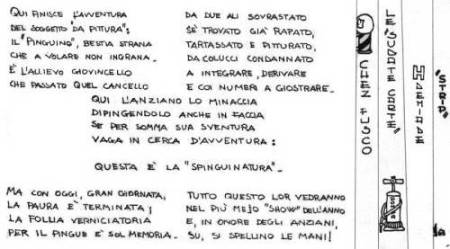 QUI FINISCE L'AVVENTURA
DEL SOGGETTO "DA PITURA";
IL "PINGUINO", BESTIA STRANA
CHE A VOLARE NON INGRANA.
È L'ALLIEVO GIOVINCELLO
CHE PASSATO QUEL CANCELLO
DA DUE ALI SOVRASTATO
SE TROVATO GIÀ RAPATO,
TARTASSATO E PITTURATO,
DA COLUCCI CONDANNATO
A INTEGRARE, DERIVARE
E COI NUMERI A GIOSTRARE.
QUI L'ANZIANO LO MINACCIA
DIPINGENDOLO ANCHE IN FACCIA
SE PER SOMMA SUA SVENTURA
VAGA IN CERCA D'AVVENTURA:
QUESTA È LA "SPINGUINATURA".
MA CON OGGI, GRAN GIORNATA,
LA PAURA È TERMINATA;
LA FOLLIA VERNICIATORIA
PER IL PINGUE È SOL MEMORIA.
TUTTO QUESTO LOR VEDRANNO
NEL PIÙ MEJO "SHOW" DELL'ANNO
E, IN ONORE DEGLI ANZIANI,
SU, SI SPELLINO LE MANI!
CHEZ FUSCO
LE "SUDATE CARTE"
"STRIP"